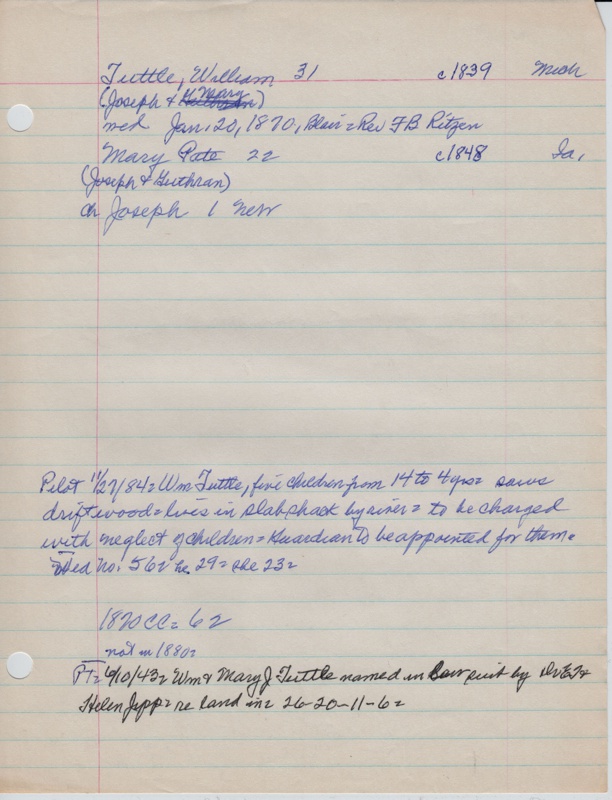 Tuttle, William 31 c1839 Mich
(Joseph & Mary)
wed Jan. 20, 1870, Blair = Rev FB Ritzen
Mary Pate 22 c1848 Ia,
(Joseph & Guthran)
ch Joseph 1 Neb
Pilot 11/27/84 = Wm Tuttle, five children from 14 to 4 yrs = saws
driftwood = lives in slab shack by river = to be charged
with neglect of children = Guardian to be appointed for them =
Wed no. 56 = he 29 = she 23 =
1870 CC = 62
not in 1880 =
PT = 6/10/43 = Wm & Mary J Tuttle named in law suit by Dr &
Helen Jipp = re land in = 26-20-11-6 =